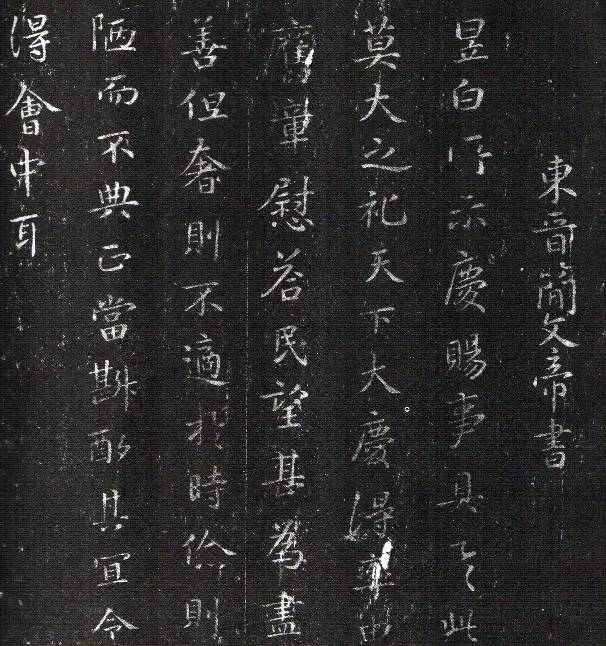 東晉簡文帝書
昱白所示慶賜事具之此
莫大之祀天下大慶得率由
舊章慰荅民望甚爲盡
善但奢則不適於時儉則
陋而不典正當斟酌其宜令
得會中耳